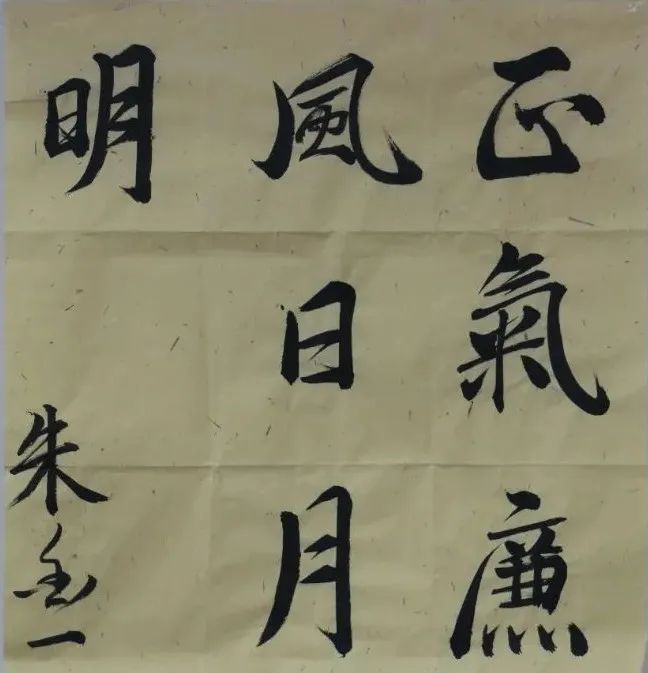 正氣廉
風日月
明
朱一